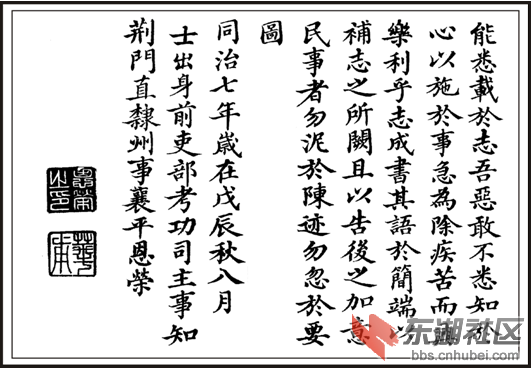 能悉載於志吾惡敢不悉知於
心以施於事急為除疾苦而
樂利乎志成書其語於簡端以
補志之所闕且以告後之加意
民事者勿泥於陳迹勿忽於要
圖
同治七年歲在戊辰秋八月
士出身前吏部考功司主事知
荆門直隸州事襄平恩榮
恩榮之印
东湖社区
bbs.cnhubei.com